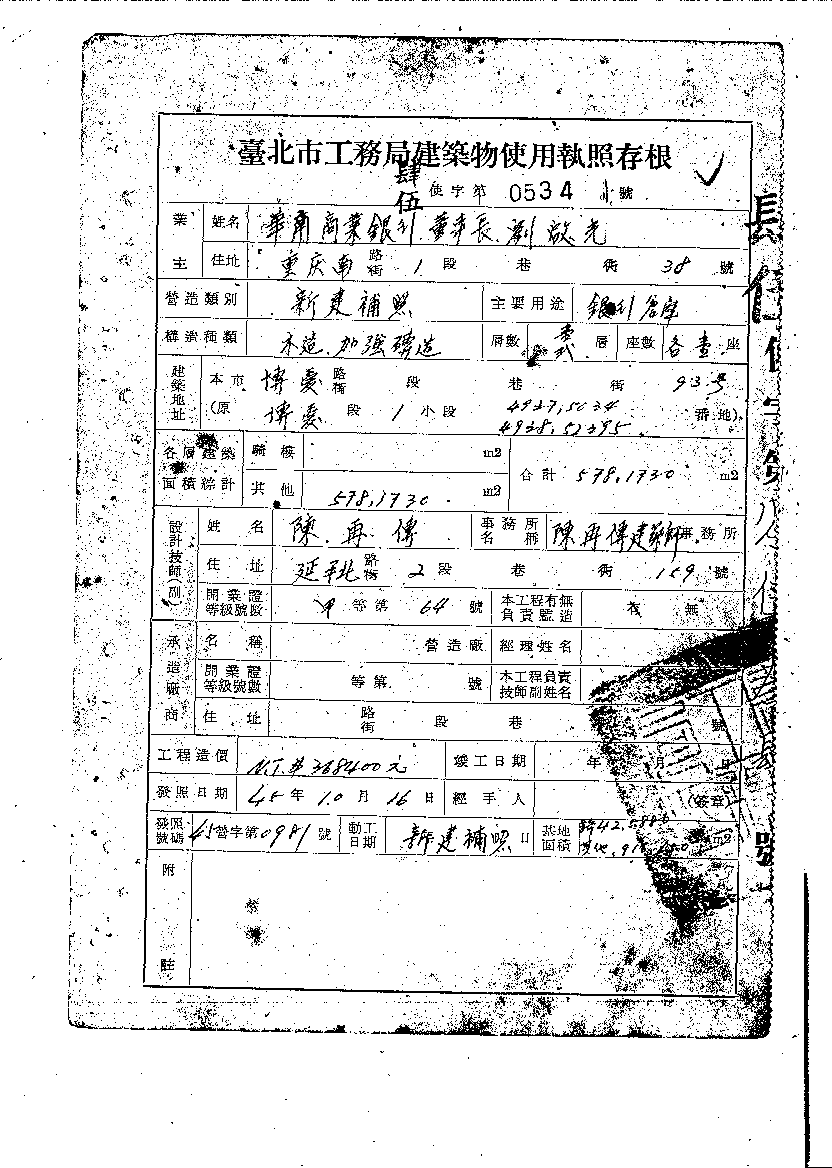 臺北市工務局建築物使用執照存根
肆伍 使字第 0534 號
業主 姓名 華南商業銀行 董事長 劉啟光
住址 重庆南 路街 1 段 巷 街 38 號
營造類別 新建補照 主要用途 銀行倉庫
構造種類 木造.加強磚造 層數 層 座數 各壹 座
建築地址 本市 博愛 路街 段 巷 街 93号
(原 博愛 段 1 小段 4927,5034 番地)
4928,52395
各層建築面積綜計 騎樓 m2 合計 578,1730 m2
其他 578,1730 m2
設計技師(副) 姓名 陳再傳 事務所名稱 陳再傳建築師事務所
住址 延平北 路街 2 段 巷 街 159 號
開業證等級號數 甲 等第 64 號 本工程有無負責監造 無
承造廠商 名稱 營造廠 經理姓名
開業證等級號數 等第 號 本工程負責技師副姓名
住址 路街 段 巷 號
工程造價 N.T.$368400元 竣工日期 年 月 日
發照日期 45年 10月 16日 經手人 (簽章)
發照號碼 45營字第0981號 動工日期 新建補照 日 基地面積 m2
附註